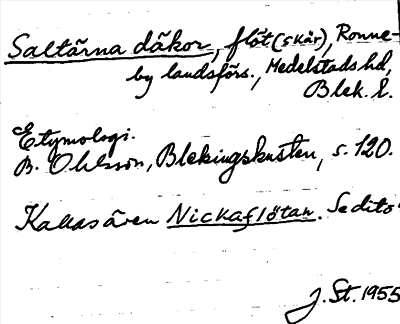 Saltärna däkor, flöt (skär), Ronne-
by landsförs., Medelstads hd,
Blek. l.
Etymologi.
B. Ohlsson, Blekingskusten, s. 120.
Kallas även Nickaflötan. Se dito!
J. St. 1955